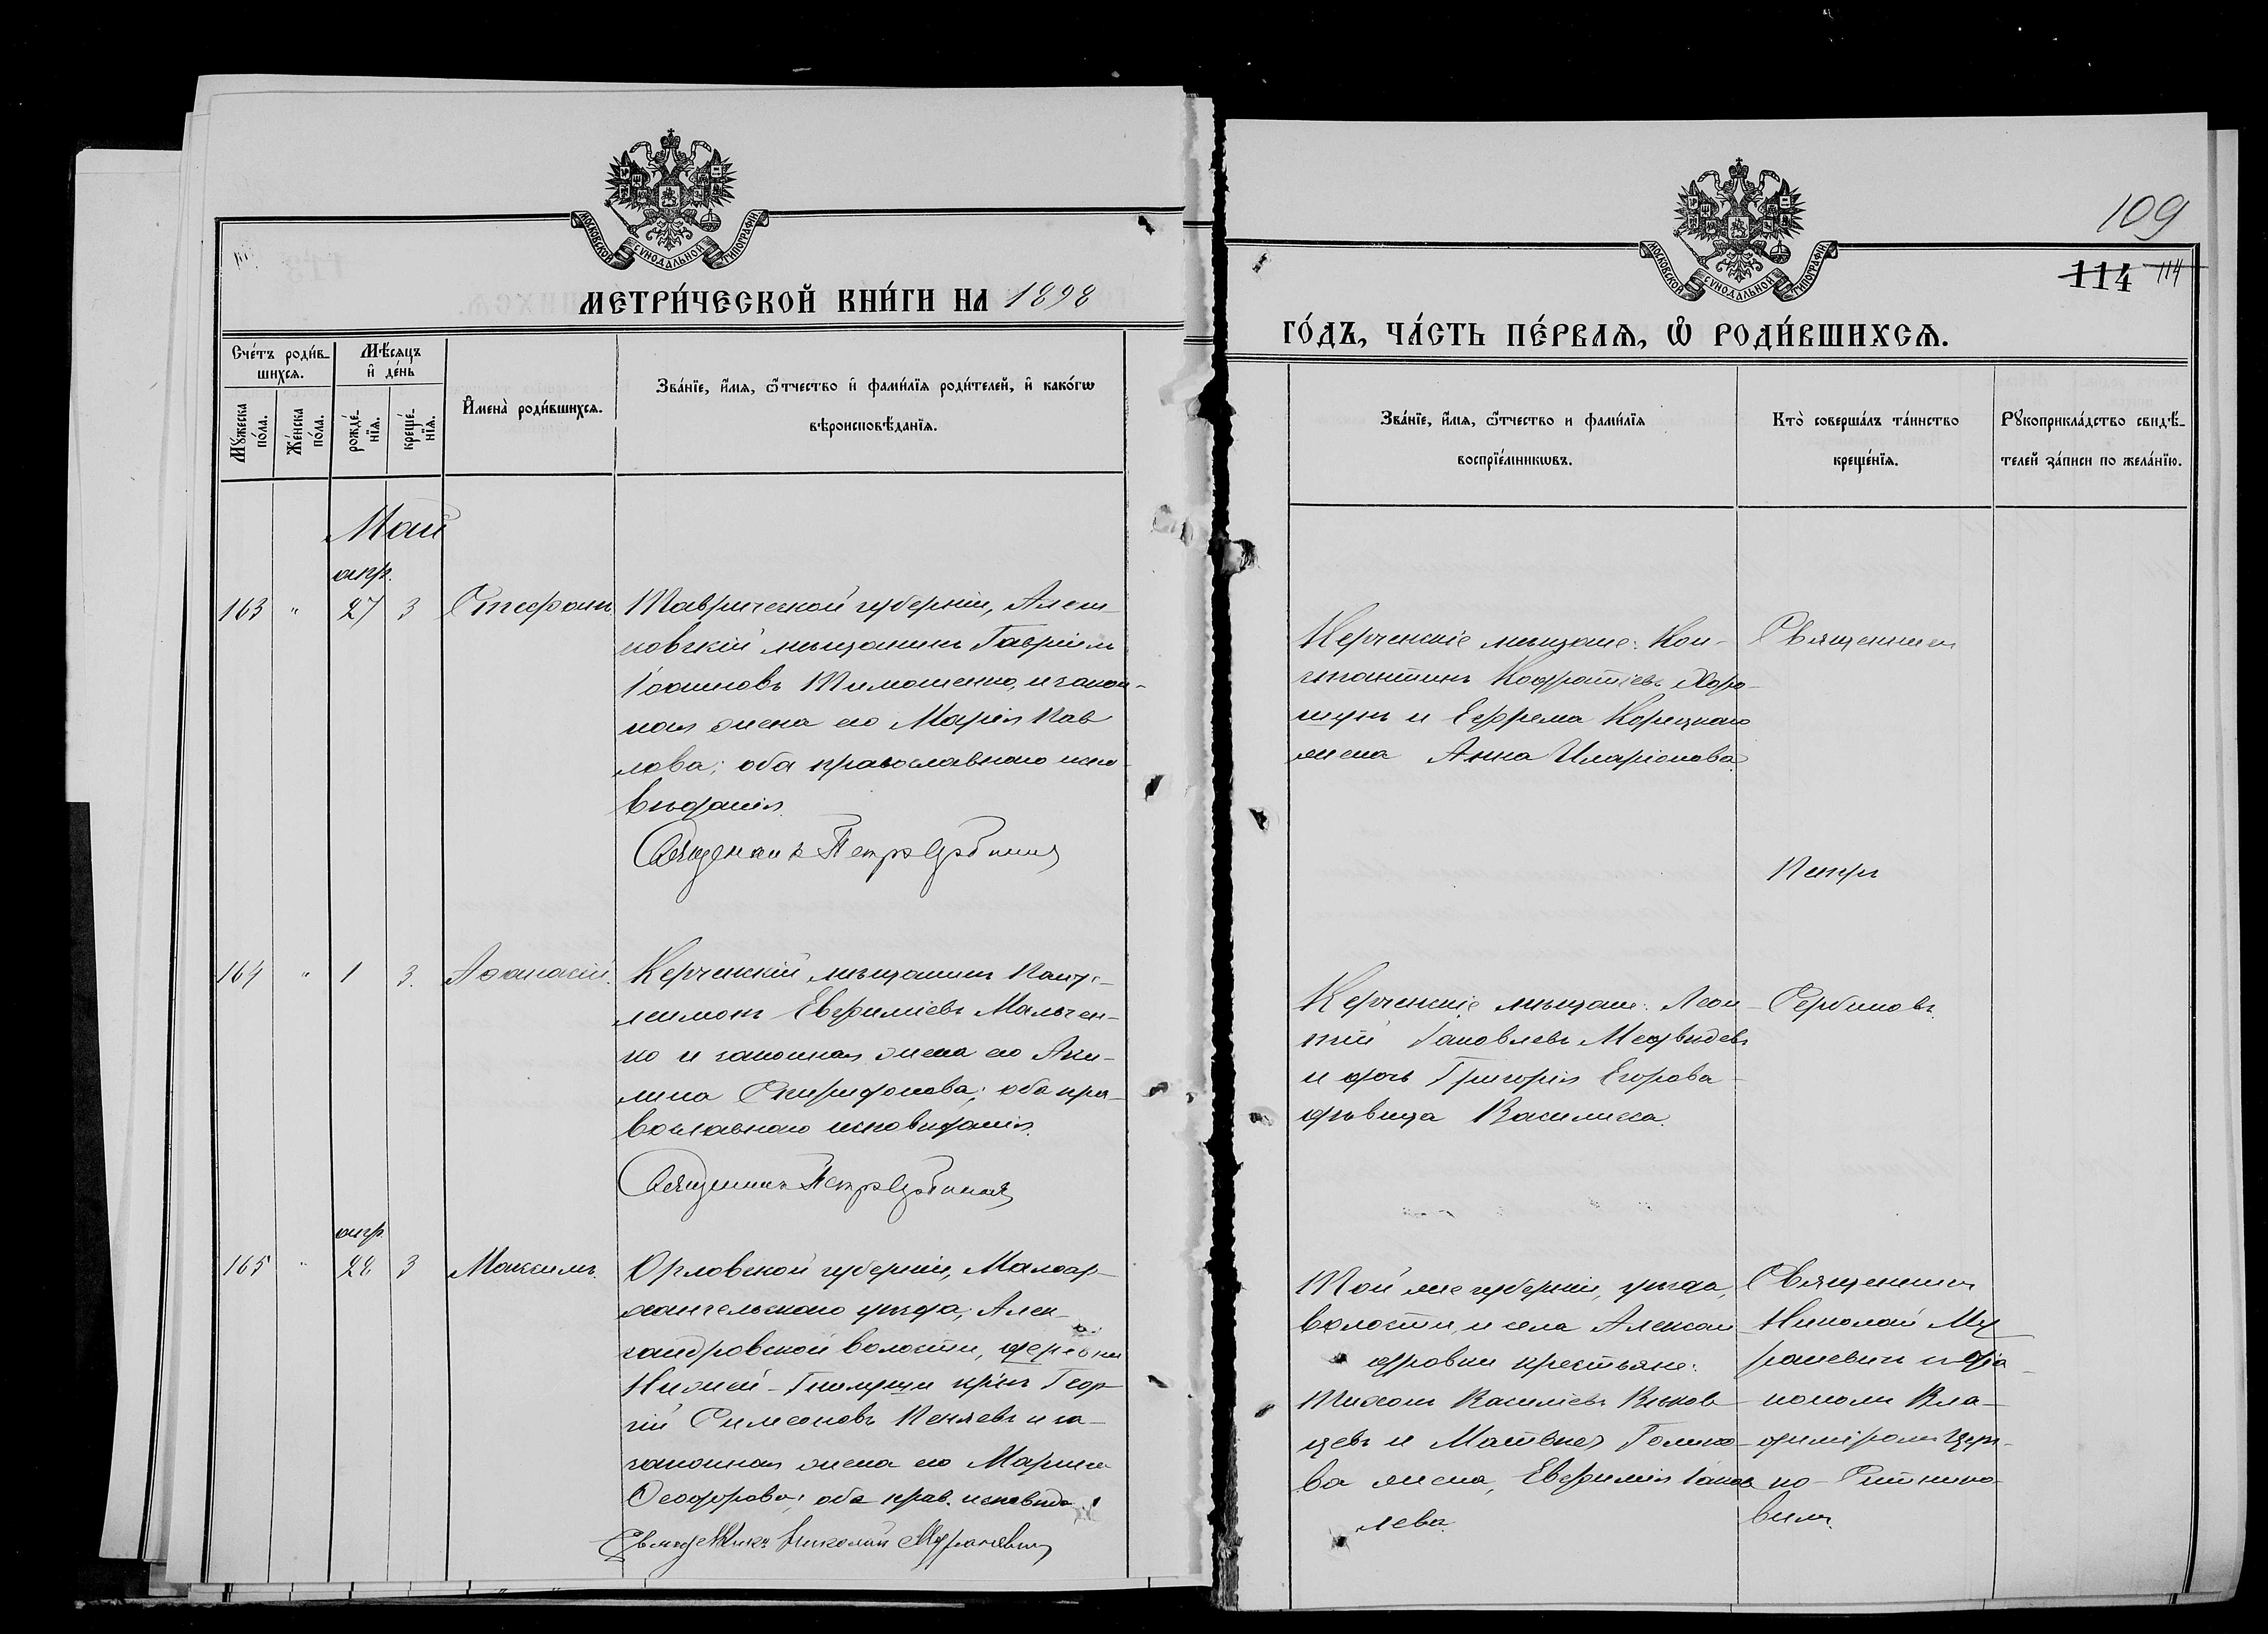 МОСКОВСКОЙ СѴНОДАЛЬНОЙ ТИПОГРАФІИ
МЕТРИ́ЧЕСКОЙ КНИ́ГИ НА 1898
Сче́тъ роди́в-
шихсѧ.
Мѣ́сѧцъ
и҆ де́нь
Мꙋ́жеска
по́ла.
Же́нска
по́ла.
рожде́-
нїѧ.
креще́-
нїѧ.
И҆мена̀ роди́вшихсѧ.
Зва́нїе, и҆́мѧ, ѻ҆́тчество и҆ фами́лїѧ роди́телей, и҆ како́гѡ
вѣроисповѣ́данїѧ.
Май
апр.
163 " 27 3 Стефанъ
Таврической губерніи, Алеш-
ковскій мѣщанинъ Гавріилъ
Іоанновъ Тимошенко, и закон-
ная жена его Марія Пав
лова; оба православнаго испо
вѣданія.
Священникъ Петръ Сербиновъ
164 " 1 3. Аѳанасій.
Керченскій мѣщанинъ Панте-
леимонъ Евфиміевъ Мальчен-
ко и законная жена его Аки-
лина Спиридонова; оба пра-
вославнаго исповѣданія.
Священникъ Петръ Сербиновъ
апр
165 " 28 3 Максимъ.
Орловской губерніи, Малоар-
хангельскаго уѣзда, Алек-
сандровской волости, деревни
Нижней- крʼнъ Геор-
гій Симеоновъ и за-
законная жена его Марина
Ѳеодорова; оба прав. исповѣда
Священникъ Николай Мураневичъ
109
114 114
МОСКОВСКОЙ СѴНОДАЛЬНОЙ ТИПОГРАФІИ
ГО́ДЪ, ЧА́СТЬ ПЕ́РВАѦ, Ѡ҆ РОДИ́ВШИХСѦ.
Зва́нїе, и҆́мѧ, ѻ҆́тчество и фами́лїѧ
воспрїе́мникѡвъ.
Кто̀ соверша́лъ та́инство
креще́нїѧ.
Рꙋкоприкла́дство свидѣ́-
телей за́писи по жела́нїю.
Керченскіе мѣщане: Кон-
стантинъ Кодратіевъ Хоро-
шунъ и Ефрема Корецкаго
жена Анна Иларіонова.
Священникъ
Петръ
Сербиновъ.
Керченскіе мѣщане: Леон-
тій Іаковлевъ Медвѣдевъ
и дочь Григорія Егорова
дѣвица Василисса.
Той же губерніи, уѣзда,
волости, и села Алексан
дровки крестьяне:
Тихонъ Василіевъ
цевъ и Матвѣя Голико-
ва жена, Евфимія Іаков
лева.
Священникъ
Николай Му
раневичъ и діа
кономъ Вла-
диміромъ Щер-
но-Ситнико-
вымъ.